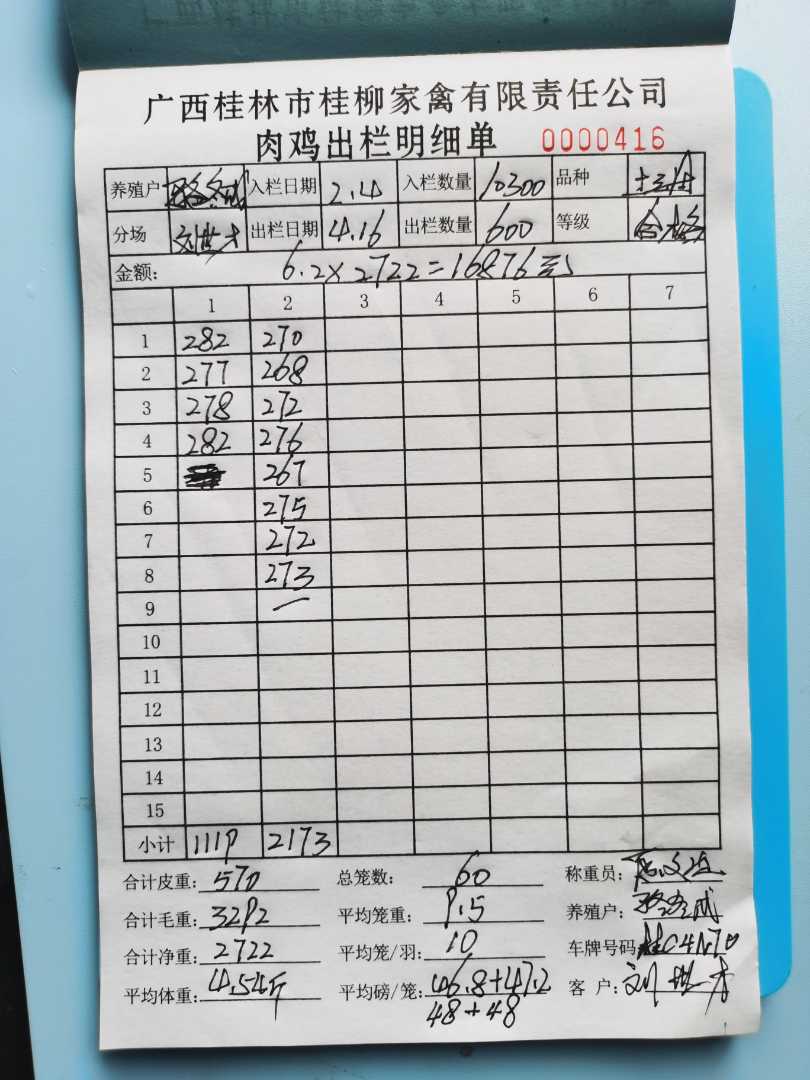 广西桂林市桂柳家禽有限责任公司
肉鸡出栏明细单 0000416
养殖户 入栏日期 2.4 入栏数量 10300 品种
分场 刘世才 出栏日期 4.16 出栏数量 600 等级 合格
金额: 6.2×2722=16876元
1 2 3 4 5 6 7
1 282 270
2 277 268
3 278 272
4 282 276
5 267
6 275
7 272
8 273
9 一
10
11
12
13
14
15
小计 1119 2173
合计皮重: 570 总笼数: 60 称重员:
合计毛重: 3292 平均笼重: 9.5 养殖户:
合计净重: 2722 平均笼/羽: 10 车牌号码
平均体重: 4.54斤 平均磅/笼: 46.8+47.2 客户: 刘世才
48+48